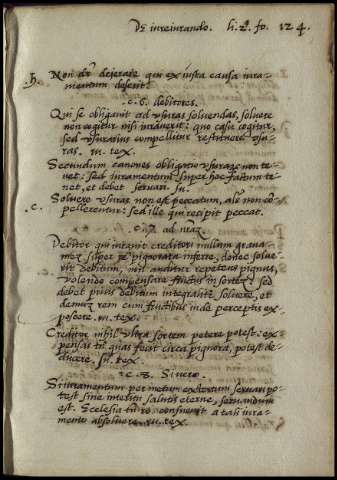 De iureiurando. li. 2. fo. 124.
h. Non dr deierare qui ex iusta causa iura-
mentum deserit.
.c. 6. debitores.
Qui se obligauit ad vsuras soluendas, soluere
non cogitur nisi iurauerit: quo casu cogitur,
sed vsurarius compellitur restituere vsu-
ras. in. tex.
Secundum canones obligatio vsurarum non te-
net: sed iuramentum super hoc factum te-
net, et debet seruari.
Soluere vsuras non est peccatum, als non co-
c. pelleretur: sed ille qui recipit peccat.
.c. 7. ad nram
Debitor qui iurauit creditori nullam graua-
men super re pignorata inferre, donec solue-
rit debitum, non auditur repetens pignus,
volendo compensare fructus in sortem, sed
debet prius debitum integraliter soluere, et
demum rem cum fructibus inde perceptis ex-
poscere. in. tex.
Creditor nihil vltra sortem petere potest: ex-
pensas tn quas fecit circa pignora, potest de-
ducere. tex
.c. 8. Si vero.
Si iuramentum per metum extortum seruari po-
test sine interitu salutis eterne, seruandum
est. Ecclesia consueuit a tali iura-
mento absoluere. in. tex.